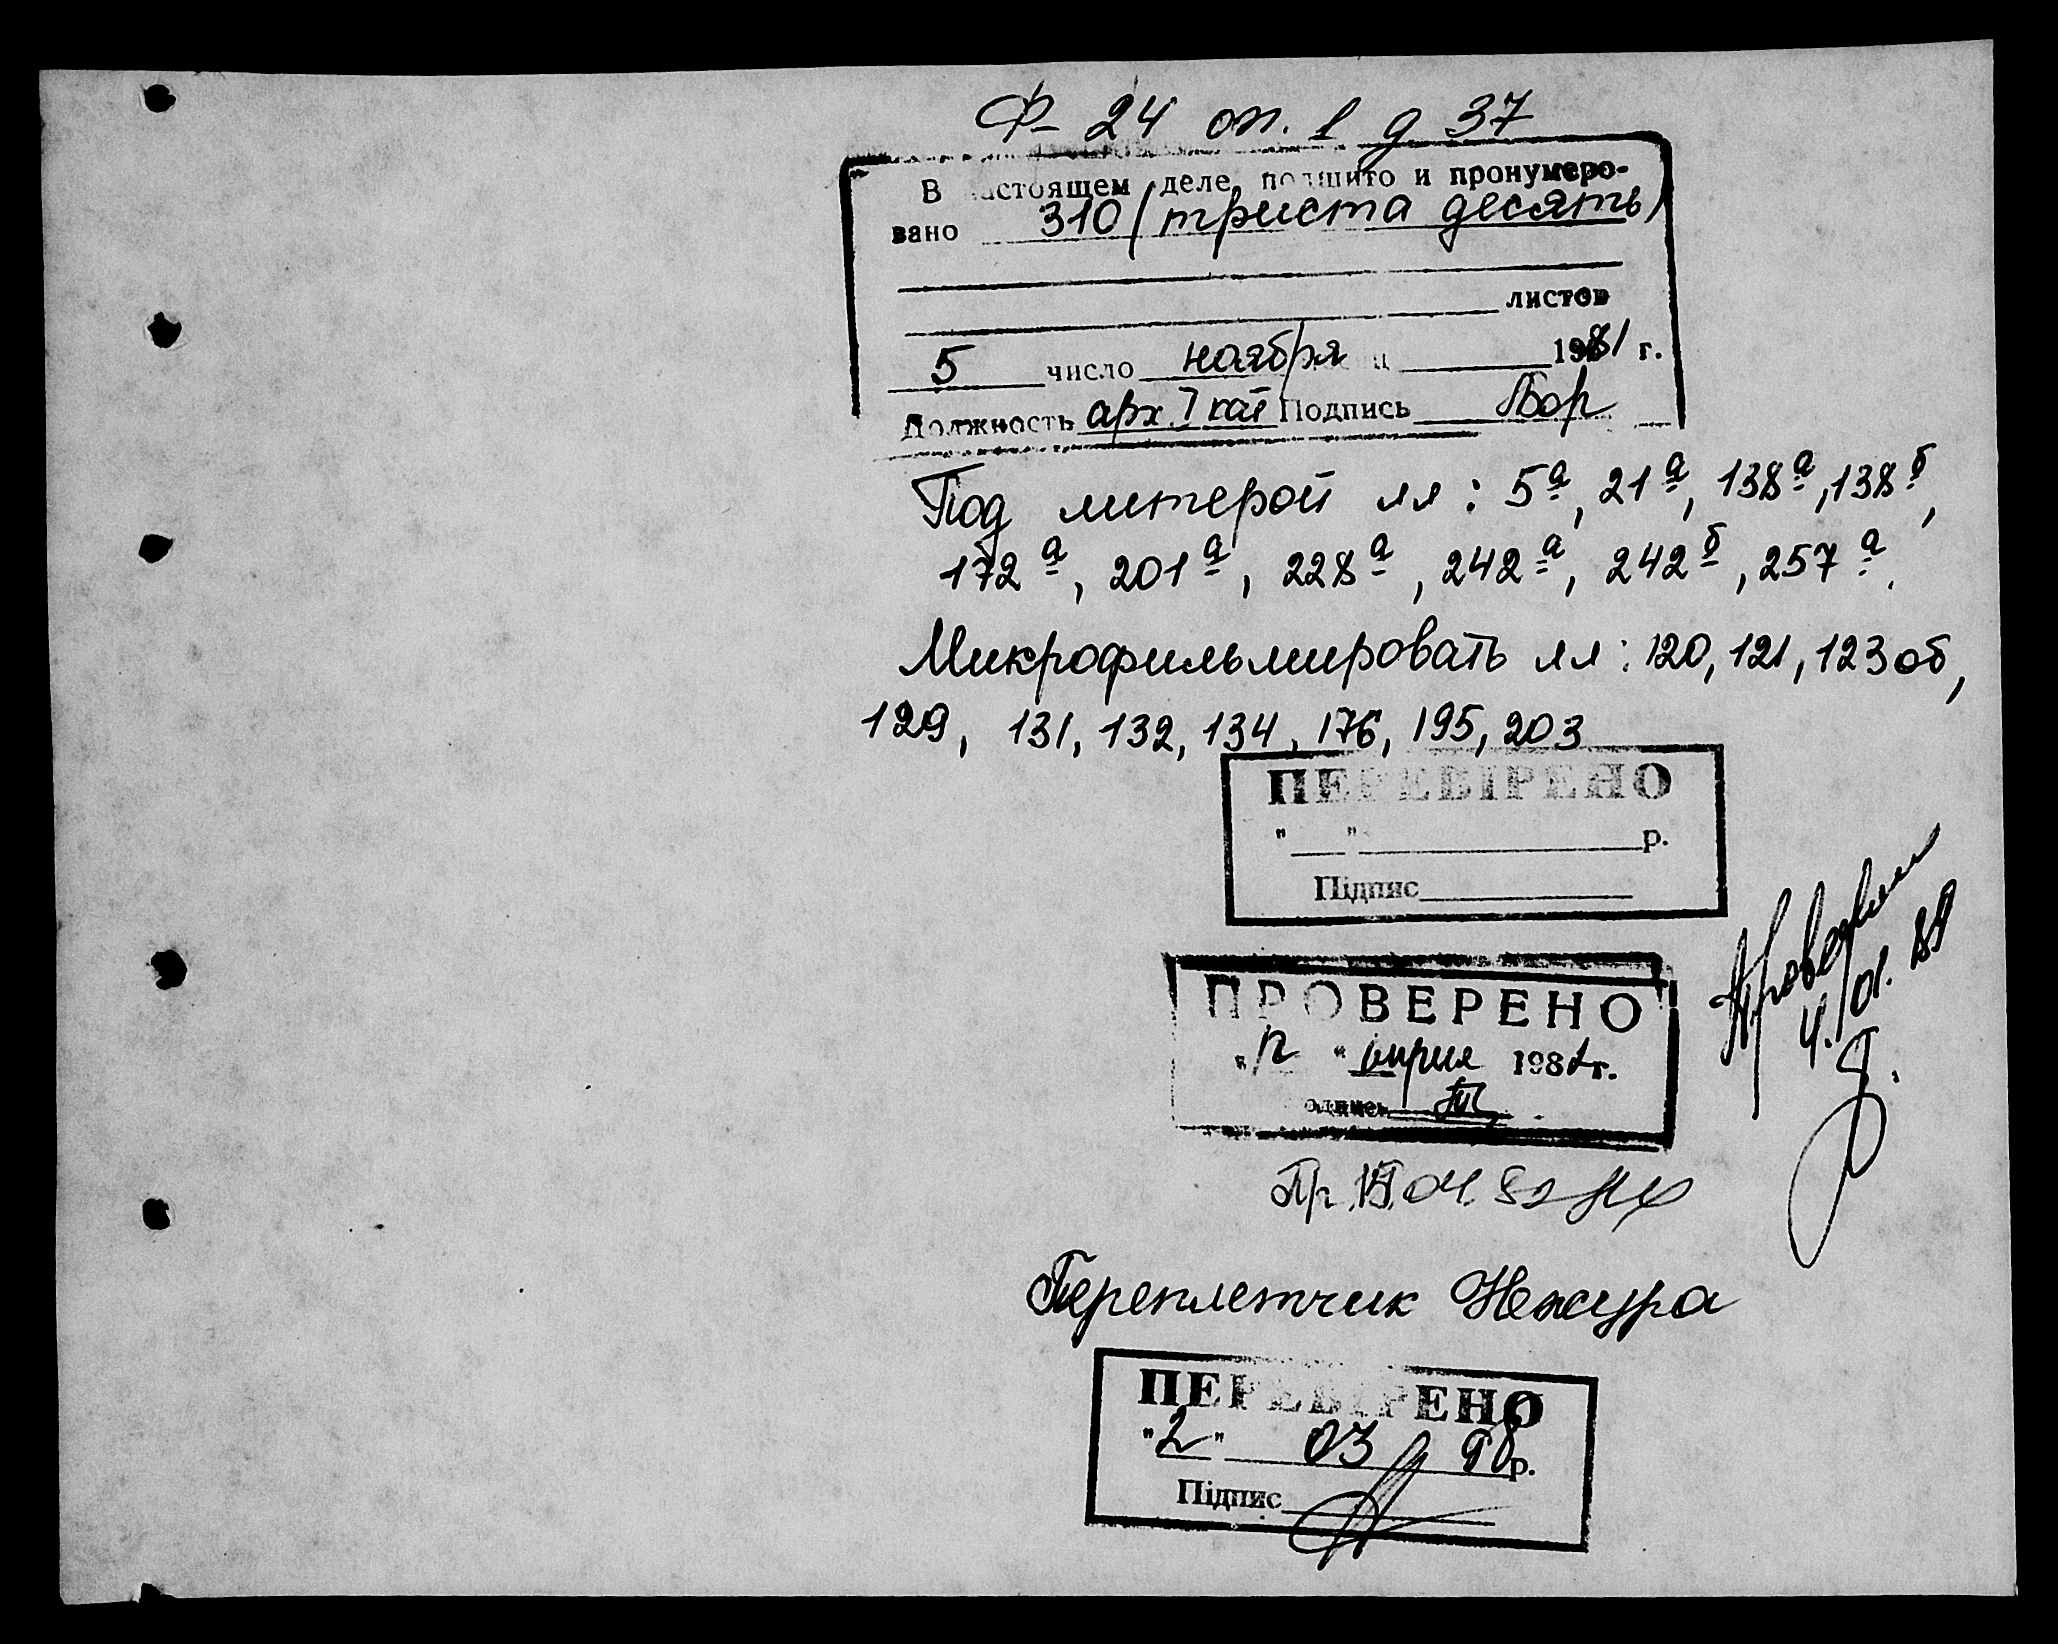 Ф- 24 оп. 1 д 37
В настоящем деле подшито и пронумеро-
вано 310 (триста десять)
листов
5 число ноября 1981 г.
Должность арх. I кат Подпись
Под литерой лл: 5а, 21а, 138а, 138б,
172а, 201а, 228а, 242а, 242б, 257а.
Микрофильмировать лл: 120, 121, 123об,
129, 131, 132, 134, 176, 195, 203
ПЕРЕВІРЕНО
" " р.
Підпис
ПРОВЕРЕНО
" " 198 г.
одпись
4. 01. 89
Пр. 04 82
Переплетчик Нежура
ПЕРЕВІРЕНО
"2" 03 98р.
Підпис